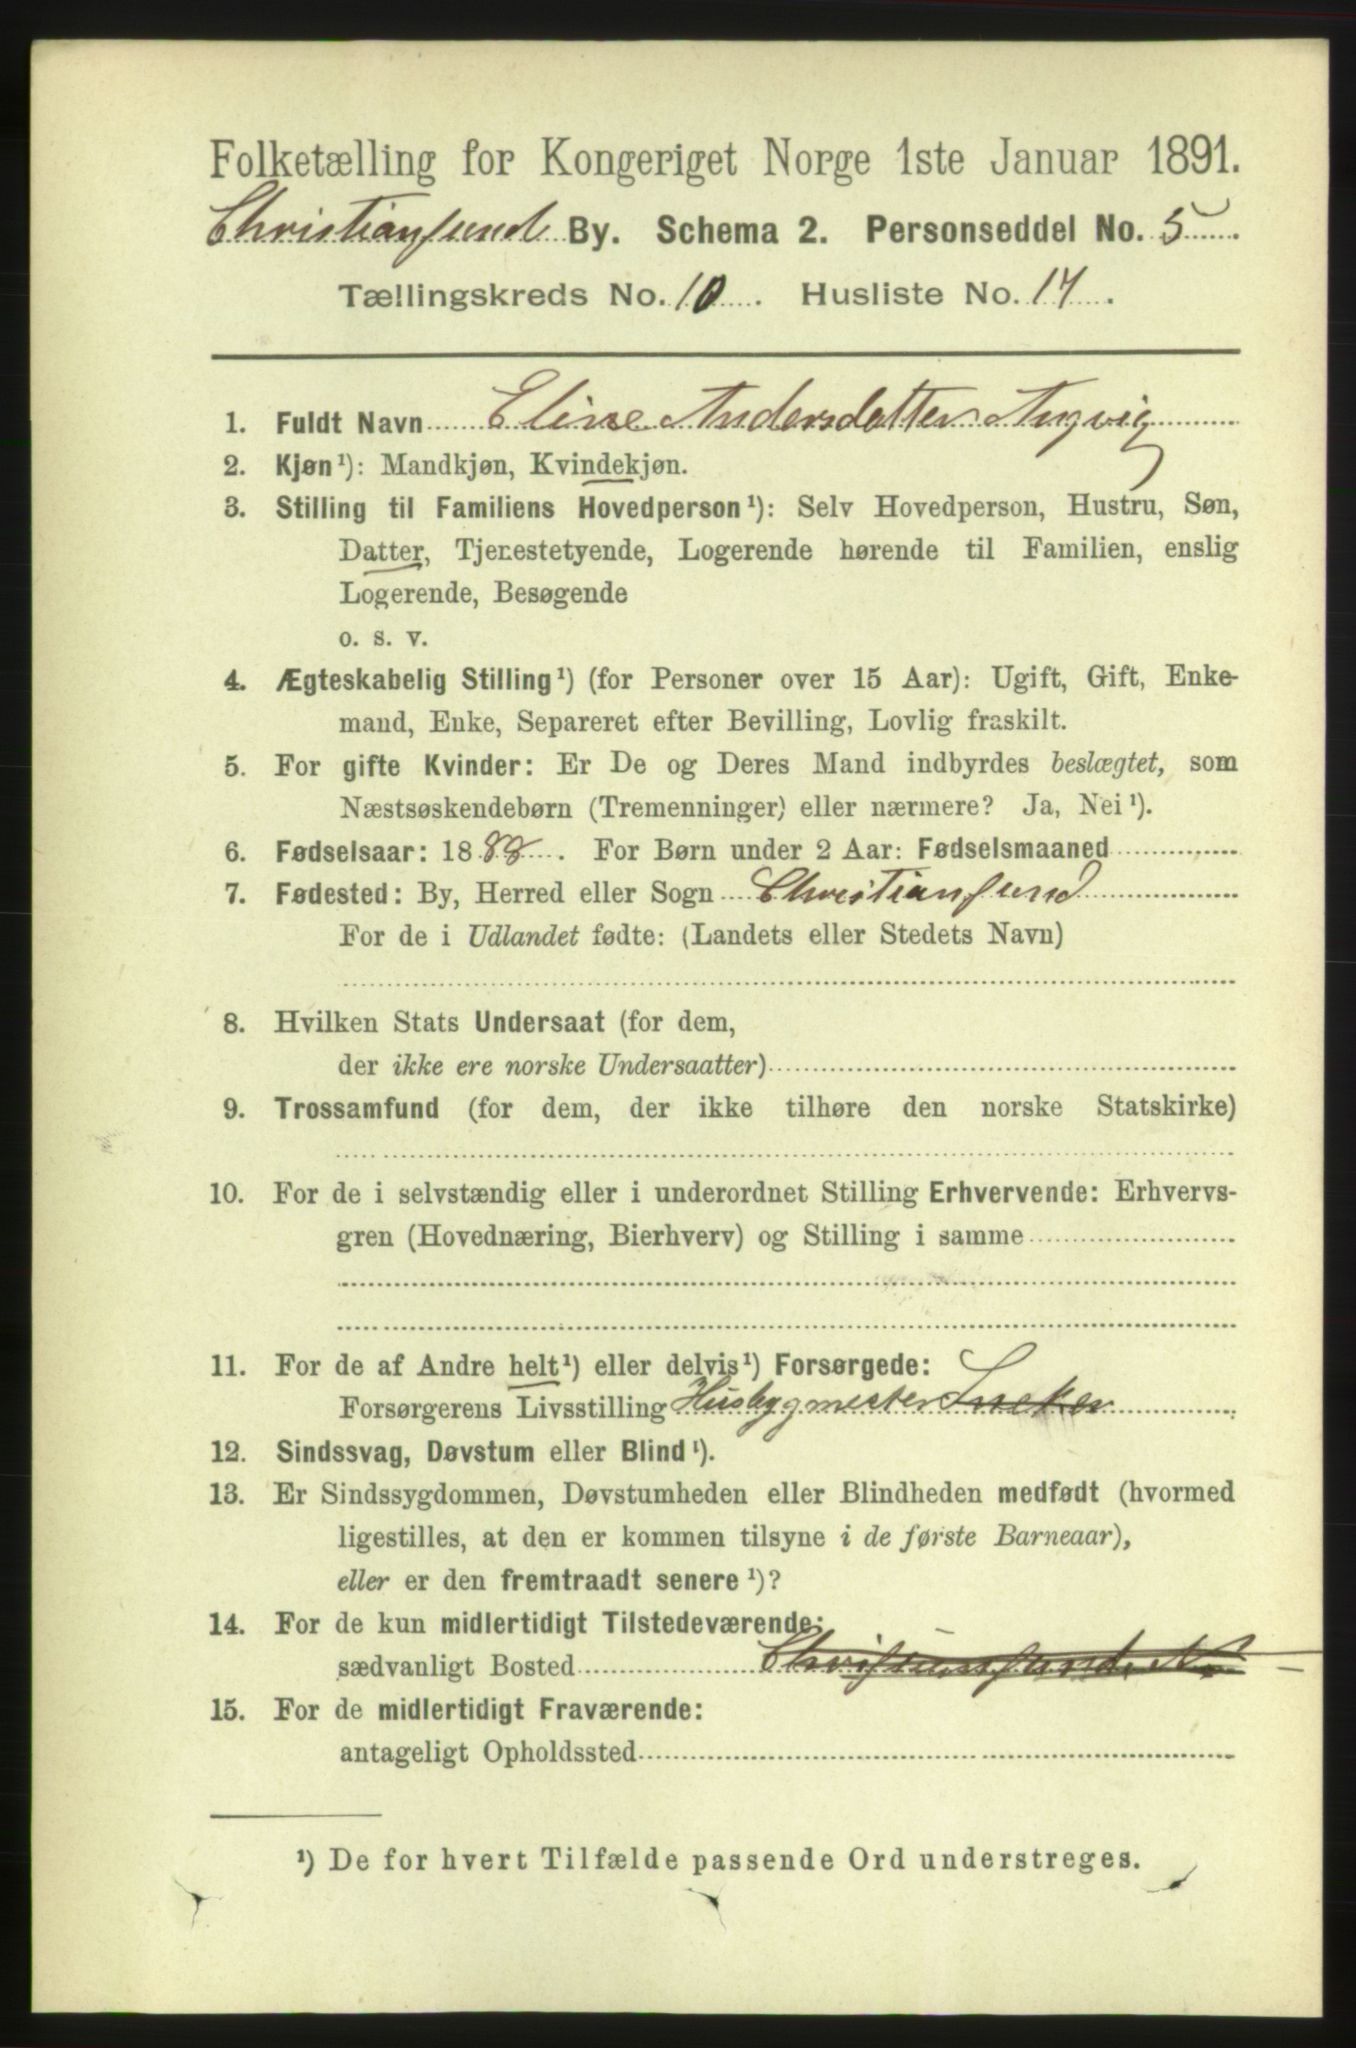 Folketælling for Kongeriget Norge 1ste Januar 1891.
Christiansund By. Schema 2. Personseddel No. 5
Tællingskreds No. 10. Husliste No. 14.
1. Fuldt Navn Eline Andersdatter Angvig
2. Kjøn¹): Mandkjøn, Kvindekjøn.
3. Stilling til Familiens Hovedperson¹): Selv Hovedperson, Hustru, Søn,
Datter, Tjenestetyende, Logerende hørende til Familien, enslig
Logerende, Besøgende
o. s. v.
4. Ægteskabelig Stilling¹) (for Personer over 15 Aar): Ugift, Gift, Enke-
mand, Enke, Separeret efter Bevilling, Lovlig fraskilt.
5. For gifte Kvinder: Er De og Deres Mand indbyrdes beslægtet, som
Næstsøskendebørn (Tremenninger) eller nærmere? Ja, Nei¹).
6. Fødselsaar: 1888. For Børn under 2 Aar: Fødselsmaaned
7. Fødested: By, Herred eller Sogn Christiansund
For de i Udlandet fødte: (Landets eller Stedets Navn)
8. Hvilken Stats Undersaat (for dem,
der ikke ere norske Undersaatter)
9. Trossamfund (for dem, der ikke tilhøre den norske Statskirke)
10. For de i selvstændig eller i underordnet Stilling Erhvervende: Erhvervs-
gren (Hovednæring, Bierhverv) og Stilling i samme
11. For de af Andre helt¹) eller delvis¹) Forsørgede:
Forsørgerens Livsstilling Husbygmester
12. Sindssvag, Døvstum eller Blind¹).
13. Er Sindssygdommen, Døvstumheden eller Blindheden medfødt (hvormed
ligestilles, at den er kommen tilsyne i de første Barneaar),
eller er den fremtraadt senere¹)?
14. For de kun midlertidigt Tilstedeværende:
sædvanligt Bosted Christiansund. N.
15. For de midlertidigt Fraværende:
antageligt Opholdssted
¹) De for hvert Tilfælde passende Ord understreges.